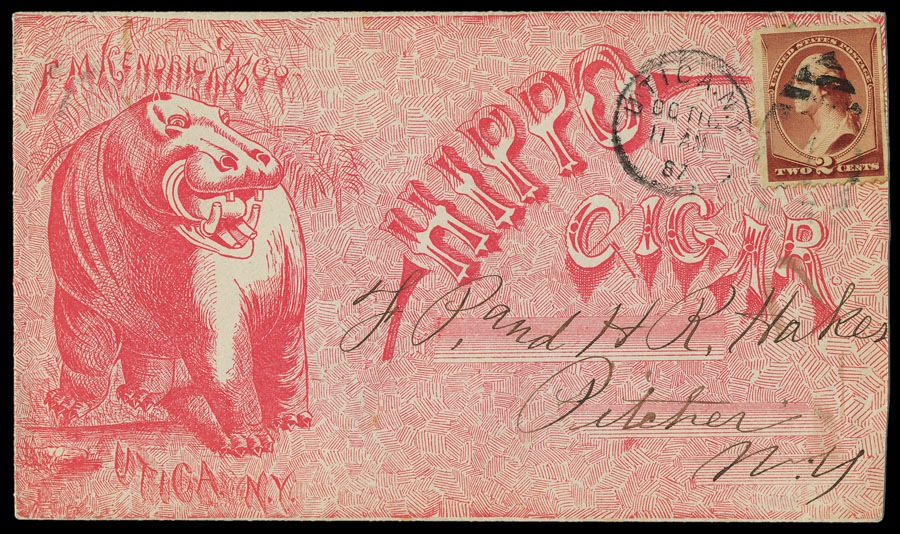 F. M. KENDRICK & CO.
HIPPO
CIGAR
UTICA. N.Y.
UTICA. N.Y.
OCT
11 AM
87
UNITED STATES POSTAGE
TWO 2 CENTS
F. P. and H. R. Hakes
Pitcher
N.Y